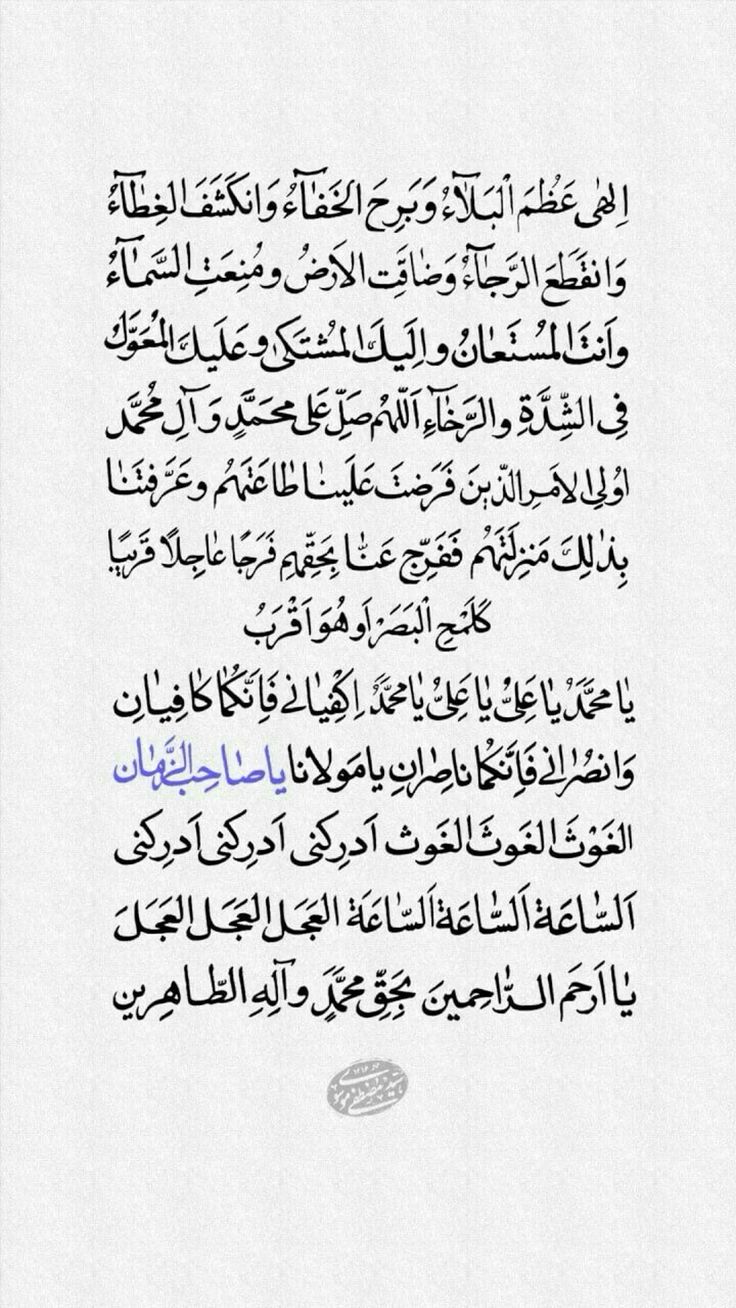 اِلٰهی عَظُمَ الْبَلآءُ وَبَرِحَ الخَفٰآءُ وَانكَشَفَ الغِطٰآءُ
وَانقَطَعَ الرَّجآءُ وَضاقَتِ الاَرضُ ومُنِعَتِ السَّمٰآءُ
واَنتَ المُستَعٰانُ واِلَیكَ المُشتَكىٰ وعَلَیكَ المُعَوَّلُ
فِی الشِّدَّةِ والرَّخآءِ اَللّهُمَّ صَلِّ عَلی محَمَّدٍ وَآلِ مُحَمَّدٍ
اوُلِی الاَمرِ الَّذینَ فَرَضتَ عَلَینٰا طٰاعَتَهُم وعَرَّفتَنٰا
بِذٰلِكَ مَنزِلَتَهُم فَفَرِّج عَنّٰا بِحَقِّهِم فَرَجًا عٰاجِلًا قَریبًا
كَلَمْحِ الْبَصَرِ اَو هُوَ اَقْرَبُ
یٰا محَمَّدُ یٰا عَلِیُّ یٰا عَلِیُّ یٰا محَمَّدُ اِكْفِیٰانی فَاِنَّكُمٰا كافِیٰانِ
وَانصُرٰانی فَاِنَّكُمٰا ناصِرٰانِ یا مَولانا یا صٰاحِبَ الزَّمٰان
الغَوْثَ الغَوثَ الغَوث اَدرِكنی اَدرِكنی اَدرِكنی
اَلسّٰاعَة اَلسّٰاعَة اَلسّٰاعَة العَجَل العَجَل العَجَلَ
یٰا اَرحَم الرّٰاحِمینَ بِحَقِّ محَمَّدٍ وآلِهِ الطّاهِرین
سید مصطفی موسوی